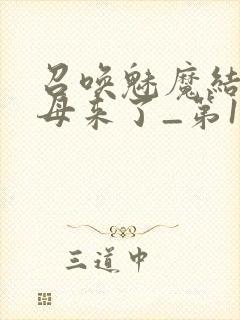 召唤魅魔结
母来了_第1
三道中